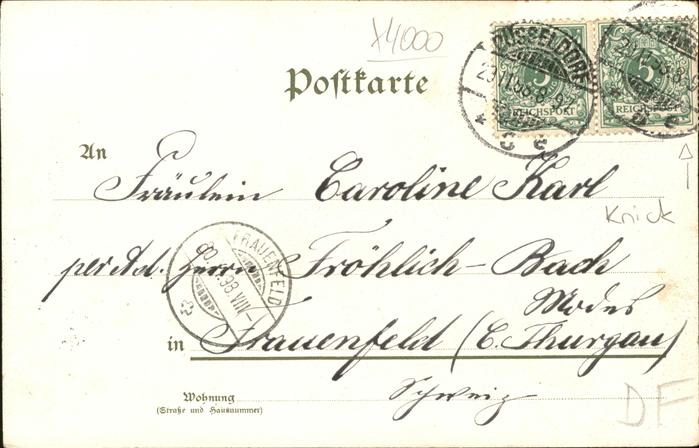 X4000
Postkarte
DÜSSELDORF
5
REICHSPOST
5
REICHSPOST
An
Fräulein Caroline Karl
Knick
per Ad. Herrn Fröhlich-Bach
FRAUENFELD
98.VIII-
Modes
in Frauenfeld (C. Thurgau)
Schweiz
Wohnung
(Straße und Hausnummer)
DF